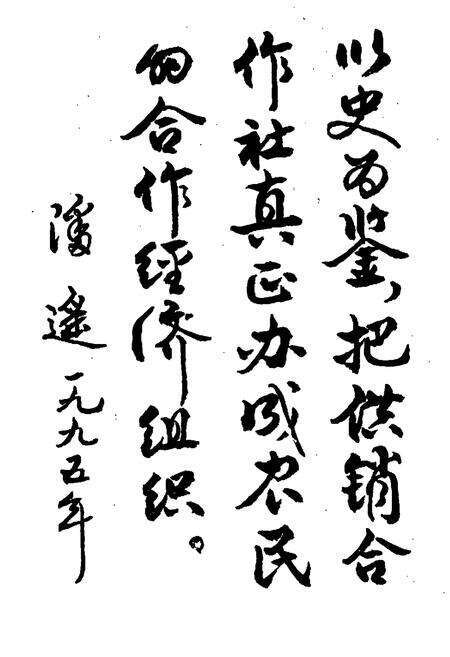 以史为鉴，把供销合
作社真正办成农民
的合作经济组织。
潘遥 一九九五年